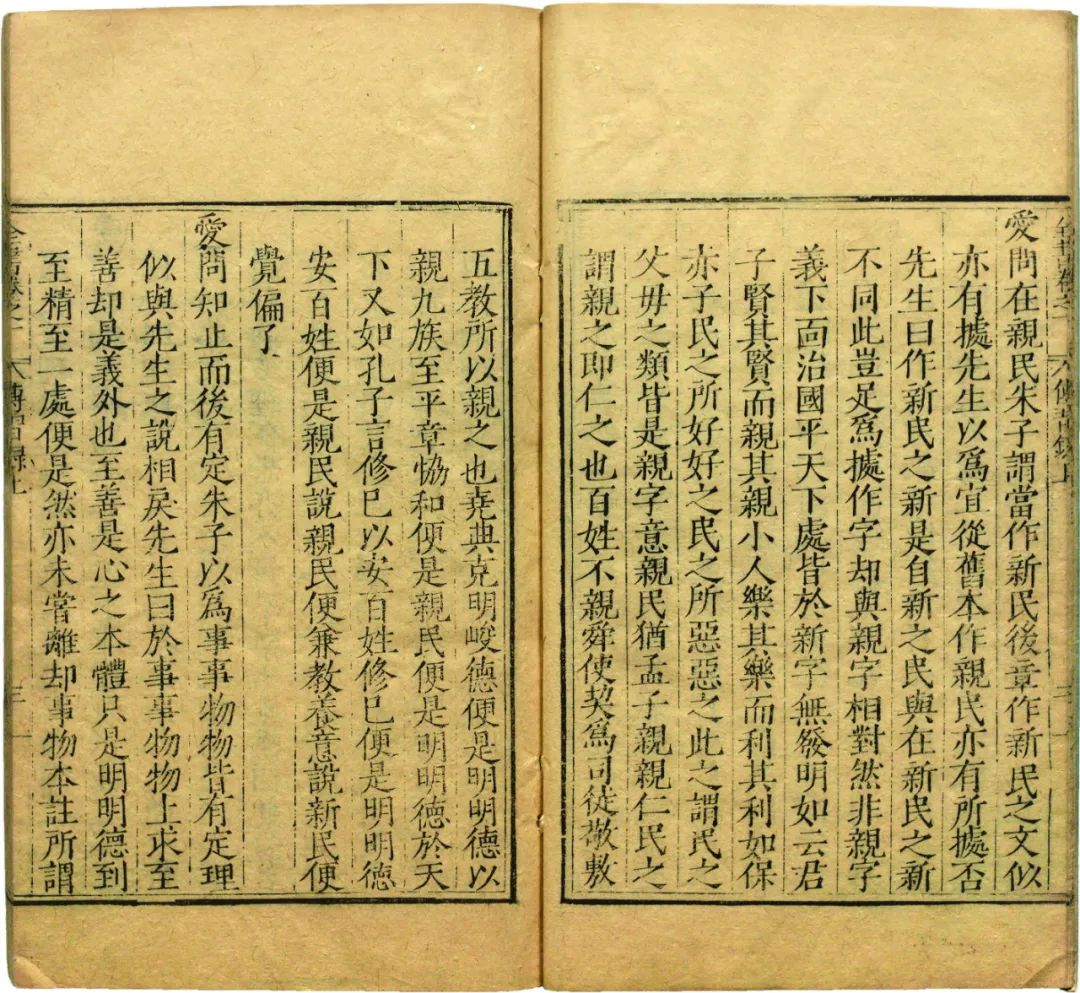 愛問在親民朱子謂當作新民後章作新民之文似
亦有據先生以爲宜從舊本作親民亦有所據否
先生曰作新民之新是自新之民與在新民之新
不同此豈足爲據作字却與親字相對然非親字
義下面治國平天下處皆於新字無發明如云君
子賢其賢而親其親小人樂其樂而利其利如保
赤子民之所好好之民之所惡惡之此之謂民之
父母之類皆是親字意親民猶孟子親親仁民之
謂親之即仁之也百姓不親舜使契爲司徒敬敷
五教所以親之也堯典克明峻德便是明明德以
親九族至平章恊和便是親民便是明明德於天
下又如孔子言修己以安百姓修己便是明明德
安百姓便是親民說親民便兼教養意說新民便
覺偏了
愛問知止而後有定朱子以爲事事物物皆有定理
似與先生之說相戾先生曰於事事物物上求至
善却是義外也至善是心之本體只是明明德到
至精至一處便是然亦未嘗離却事物本註所謂
全書卷之一 傳習錄上 三